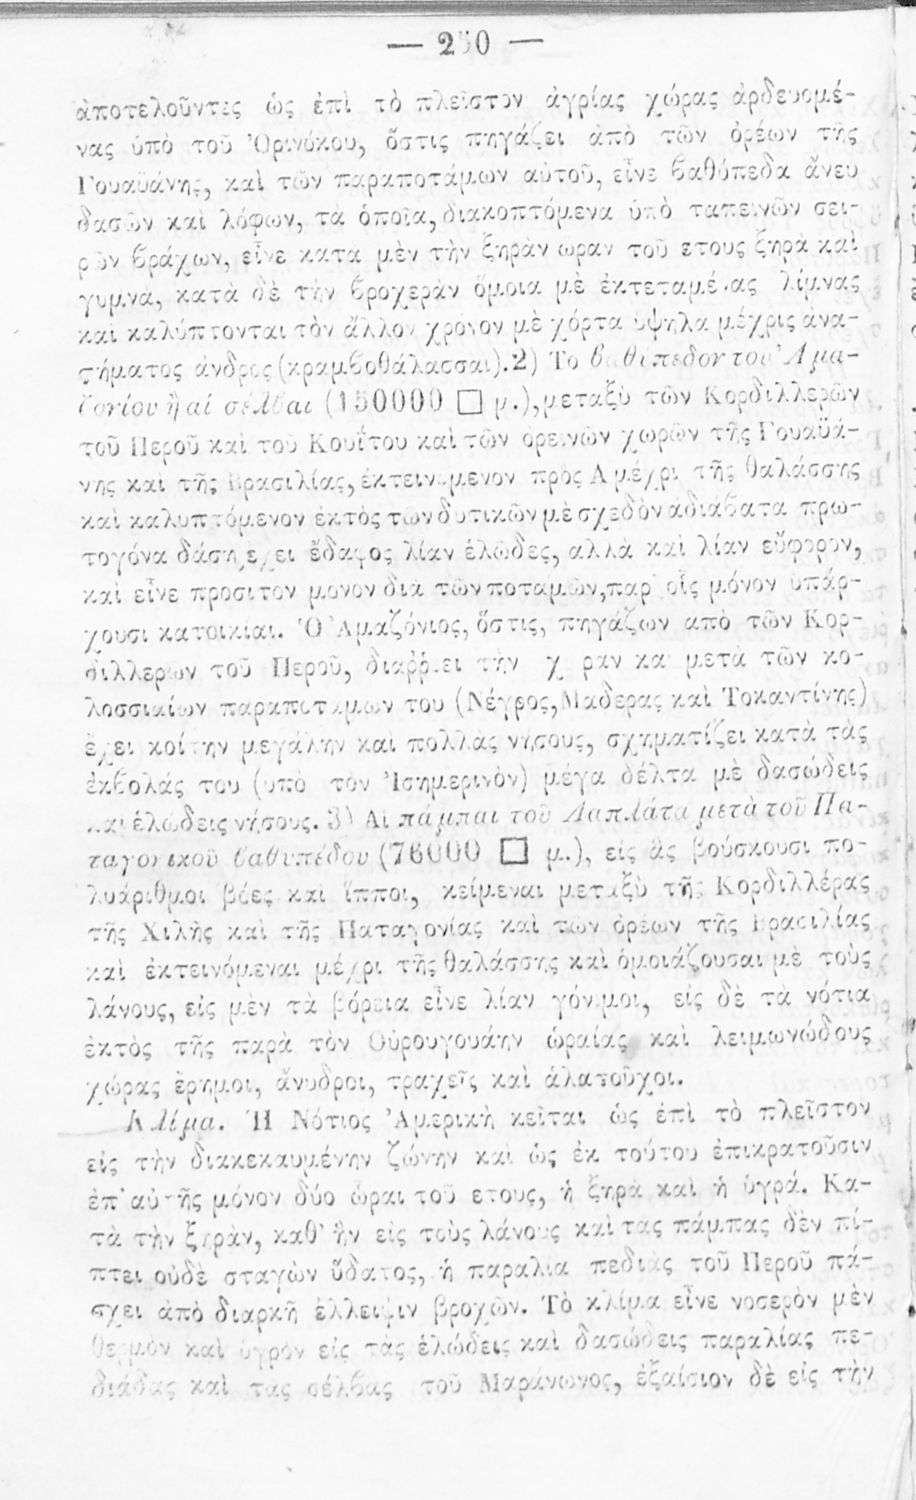 — 250 —
ἀποτελοῦντες ὡς ἐπὶ τὸ πλεῖστον ἀγρίας χώρας ἀρδευομέ-
νας ὑπὸ τοῦ Ὀρινόκου, ὅστις πηγάζει ἀπὸ τῶν ὀρέων τῆς
Γουαϋάνης, καὶ τῶν παραποτάμων αὐτοῦ, εἶνε βαθύπεδα ἄνευ
δασῶν καὶ λόφων, τὰ ὁποῖα, διακοπτόμενα ὑπὸ ταπεινῶν σει-
ρῶν βράχων, εἶνε κατὰ μὲν τὴν ξηρὰν ὥραν τοῦ ἔτους ξηρὰ καὶ
γυμνὰ, κατὰ δὲ τὴν βροχερὰν ὅμοια μὲ ἐκτεταμένας λίμνας
καὶ καλύπτονται τὸν ἄλλον χρόνον μὲ χόρτα ὑψηλὰ μέχρις ἀνα-
στήματος ἀνδρὸς (κραμβοθάλασσαι). 2) Τὸ βαθύπεδον τοῦ Ἀμα-
ζονίου ἢ αἱ σέλβαι (150000 □ μ.), μεταξὺ τῶν Κορδιλλερῶν
τοῦ Περοῦ καὶ τοῦ Κουΐτου καὶ τῶν ὀρεινῶν χωρῶν τῆς Γουαϋά-
νης καὶ τῆς Βρασιλίας, ἐκτεινόμενον πρὸς Α μέχρι τῆς θαλάσσης
καὶ καλυπτόμενον ἐκτὸς τῶν δυτικῶν μὲ σχεδὸν ἀδιάβατα πρω-
τογόνα δάση ἔχει ἔδαφος λίαν ἑλῶδες, ἀλλὰ καὶ λίαν εὔφορον,
καὶ εἶνε προσιτὸν μόνον διὰ τῶν ποταμῶν, παρ' οἷς μόνον ὑπάρ-
χουσι κατοικίαι. Ὁ Ἀμαζόνιος, ὅστις, πηγάζων ἀπὸ τῶν Κορ-
διλλερῶν τοῦ Περοῦ, διαῤῥέει τὴν χώραν καὶ μετὰ τῶν κο-
λοσσιαίων παραποτάμων του (Νέγρος, Μαδέρας καὶ Τοκαντίνης)
ἔχει κοίτην μεγάλην καὶ πολλὰς νήσους, σχηματίζει κατὰ τὰς
ἐκβολάς του (ὑπὸ τὸν Ἰσημερινὸν) μέγα δέλτα μὲ δασώδεις
καὶ ἑλώδεις νήσους. 3) Αἱ πάμπαι τοῦ Λαπλάτα μετὰ τοῦ Πα-
ταγονικοῦ βαθυπέδου (76000 □ μ.), εἰς ἃς βούσκουσι πο-
λυάριθμοι βόες καὶ ἵπποι, κείμεναι μεταξὺ τῆς Κορδιλλέρας
τῆς Χιλῆς καὶ τῆς Παταγονίας καὶ τῶν ὀρέων τῆς Βρασιλίας
καὶ ἐκτεινόμεναι μέχρι τῆς θαλάσσης καὶ ὁμοιάζουσαι μὲ τοὺς
λάνους, εἰς μὲν τὰ βόρεια εἶνε λίαν γόνιμοι, εἰς δὲ τὰ νότια
ἐκτὸς τῆς παρὰ τὸν Οὐρουγουάην ὡραίας καὶ λειμωνώδους
χώρας ἔρημοι, ἄνυδροι, τραχεῖς καὶ ἁλατοῦχοι.
Κλίμα. Ἡ Νότιος Ἀμερικὴ κεῖται ὡς ἐπὶ τὸ πλεῖστον
εἰς τὴν διακεκαυμένην ζώνην καὶ ὡς ἐκ τούτου ἐπικρατοῦσιν
ἐπ' αὐτῆς μόνον δύο ὧραι τοῦ ἔτους, ἡ ξηρὰ καὶ ἡ ὑγρά. Κα-
τὰ τὴν ξηρὰν, καθ' ἣν εἰς τοὺς λάνους καὶ τὰς πάμπας δὲν πί-
πτει οὐδὲ σταγὼν ὕδατος, ἡ παραλία πεδιὰς τοῦ Περοῦ πά-
σχει ἀπὸ διαρκῆ ἔλλειψιν βροχῶν. Τὸ κλίμα εἶνε νοσερὸν μὲν
θερμὸν καὶ ὑγρὸν εἰς τὰς ἑλώδεις καὶ δασώδεις παραλίας πε-
διάδας καὶ τὰς σέλβας τοῦ Μαράνωνος, ἐξαίσιον δὲ εἰς τὴν